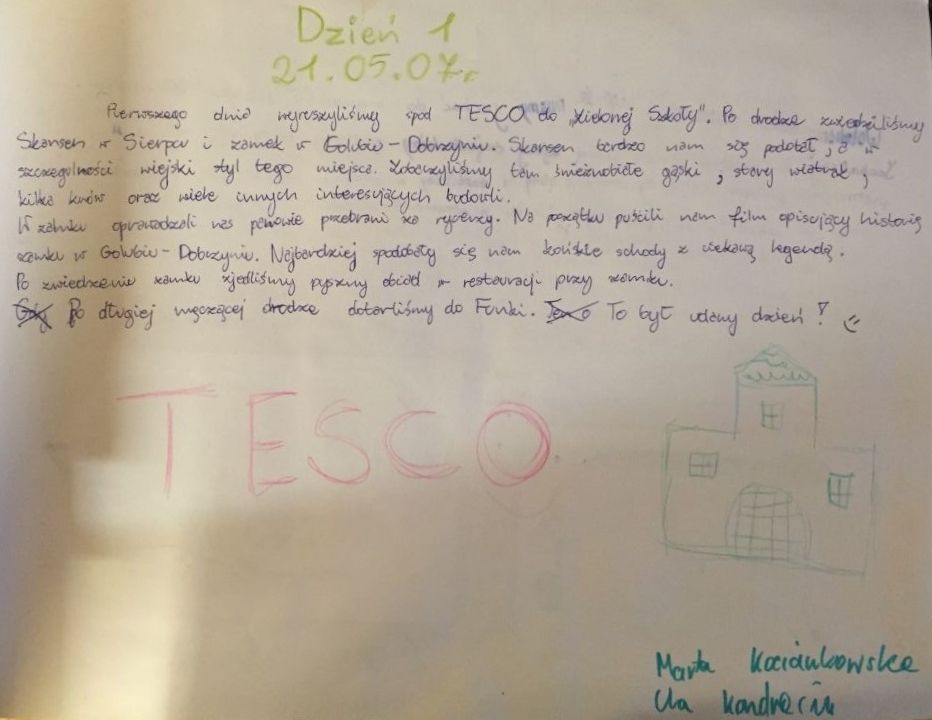 Dzień 1
21.05.07r.
Pierwszego dnia wyruszyliśmy spod TESCO do „Zielonej Szkoły". Po drodze zwiedziliśmy
Skansen w Sierpcu i zamek w Golubiu-Dobrzyniu. Skansen bardzo nam się podobał, a w
szczególności wiejski styl tego miejsca. Zobaczyliśmy tam śnieżnobiałe gąski, stary wiatrak,
kilka kurów oraz wiele innych interesujących budowli.
W zamku oprowadzali nas panowie przebrani za rycerzy. Na początku puścili nam film opisujący historię
zamku w Golubiu-Dobrzyniu. Najbardziej spodobały się nam końskie schody z ciekawą legendą.
Po zwiedzeniu zamku zjedliśmy pyszny obiad w restauracji przy zamku.
Po długiej męczącej drodze dotarliśmy do Funki. To był udany dzień!
TESCO
Marta
Ula